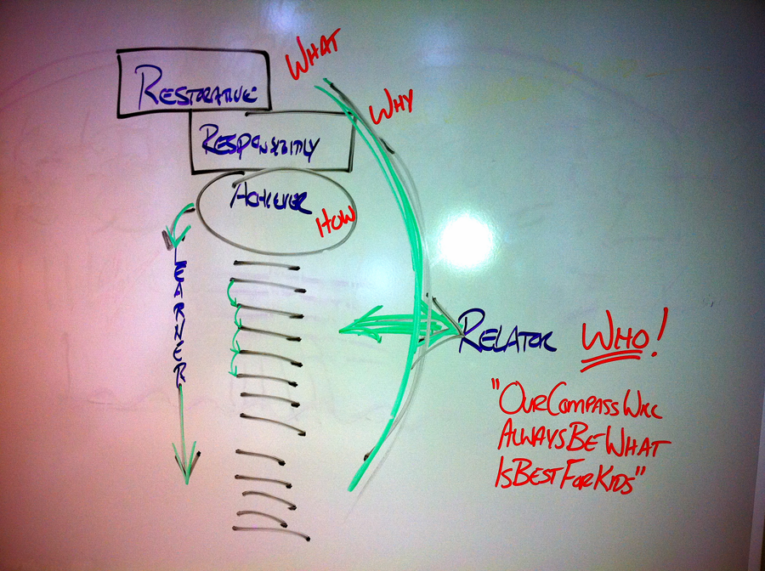 WHAT
RESTORATIVE
WHY
RESPONSIBILITY
ACHIEVER
HOW
LEARNER
RELATOR WHO!
"OUR COMPASS WILL
ALWAYS BE WHAT
IS BEST FOR KIDS"